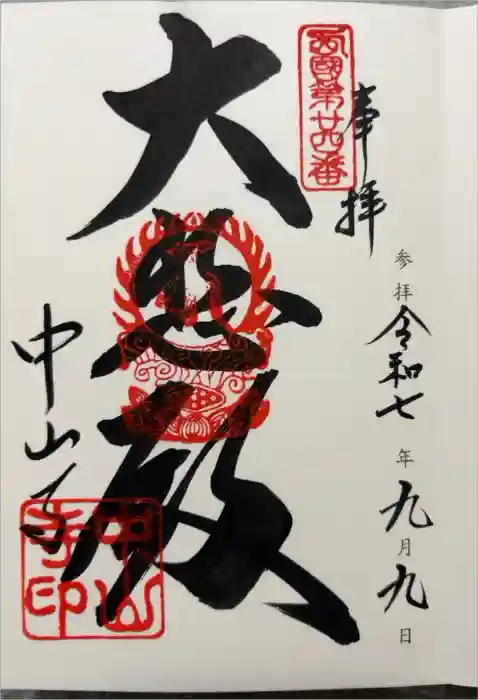 西國第廿四番
奉拝
参拝 令和七年九月九日
大悲殿
中山寺
中山寺印